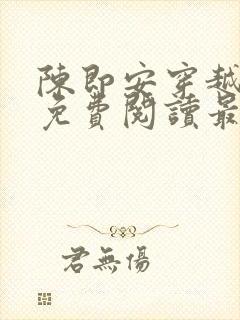 陳即安穿越
免費閱讀最
君無傷